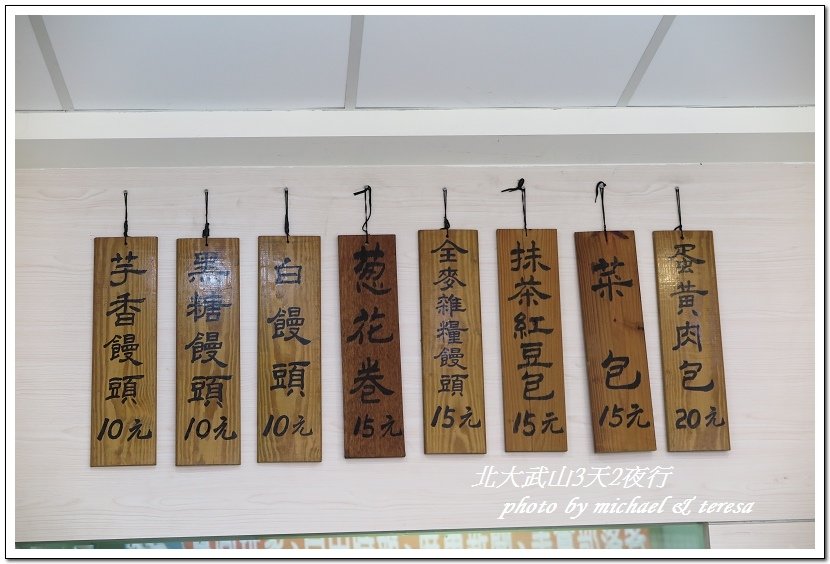 芋香饅頭
10元
黑糖饅頭
10元
白饅頭
10元
葱花卷
15元
全麥雜糧饅頭
15元
抹茶紅豆包
15元
菜包
15元
蛋黃肉包
20元
北大武山3天2夜行
photo by michael & teresa